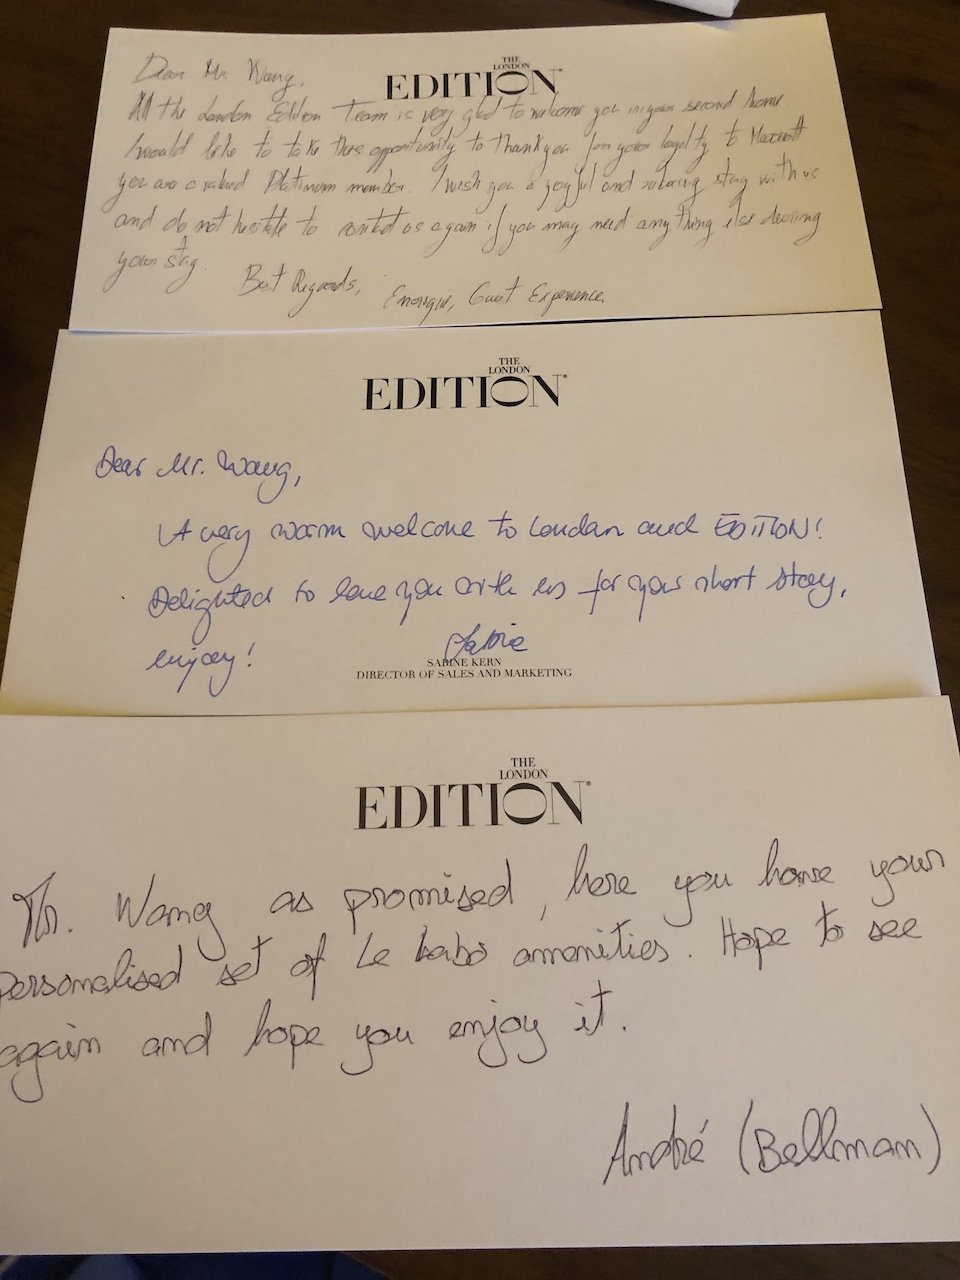 THE
LONDON
EDITION
Dear Mr Wang,
All the London Edition Team is very glad to welcome you in your second home
I would like to take this opportunity to thank you for your loyalty to Marriott
you are a valued Platinum member. I wish you a joyful and relaxing stay with us
and do not hesitate to contact us again if you may need any thing else during
your stay.
Best Regards,
Guest Experience
THE
LONDON
EDITION
Dear Mr. Wang,
A very warm welcome to London and EDITION!
Delighted to have you with us for your short stay,
enjoy!
Sabine
SABINE KERN
DIRECTOR OF SALES AND MARKETING
THE
LONDON
EDITION
Mr. Wang as promised, here you have your
personalised set of Le Labo amenities. Hope to see
again and hope you enjoy it.
André (Bellman)